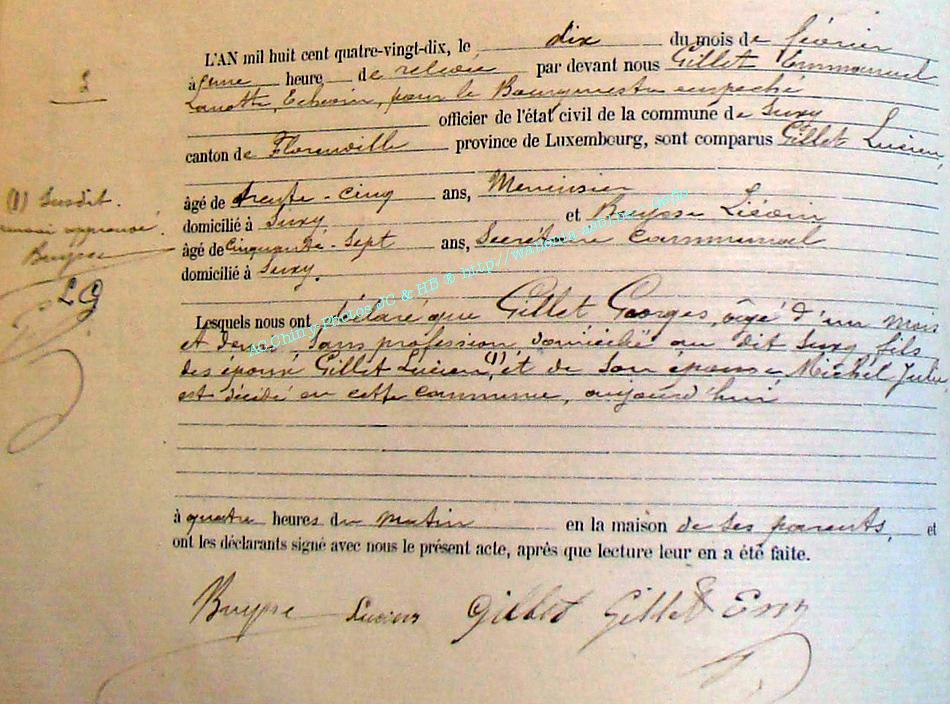 3
L'AN mil huit cent quatre-vingt-dix, le dix du mois de février
à une heure de relevée par devant nous Gillet Emmanuel
Echevin, pour le Bourgmestre empeché
officier de l'état civil de la commune de Suxy
canton de Florenville province de Luxembourg, sont comparus Gillet Lucien,
âgé de trente-cinq ans, Menuisier
domicilié à Suxy et Buysse Liévin
âgé de Cinquante-Sept ans, Secrétaire Communal
domicilié à Suxy.
(1) Susdit.
renvoi approuvé.
Buysse
LG
Lesquels nous ont déclaré que Gillet Georges, âgé d'un mois
et demi, sans profession domicilié au dit Suxy fils
des époux Gillet Lucien, (1) et de son épouse Michel Julie
est décédé en cette commune, aujourd'hui
à quatre heures du matin en la maison de ses parents, et
ont les déclarants signé avec nous le présent acte, après que lecture leur en a été faite.
Buysse Lucien Gillet Gillet Em
Au Chiny Photos JC & HB ® http://wallonia-asbl.